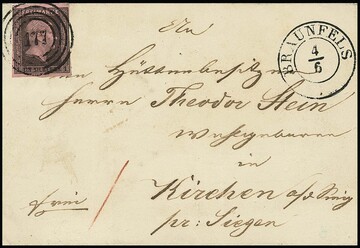 An
177
BRAUNFELS
4
6
den Hüttenbesitzer
Herrn Theodor Stein
Wohlgeboren
in
Kirchen a/d Sieg
frei
pr: Siegen